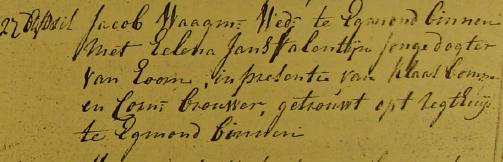 27 April Jacob Waagm: Wed: te Egmond binnen
Met Helena Jans Valentijn Jonge dogter
van Loom, in presente van Klaas
en Corn: Brouwer, getrouwt opt regthuijs
te Egmond binnen